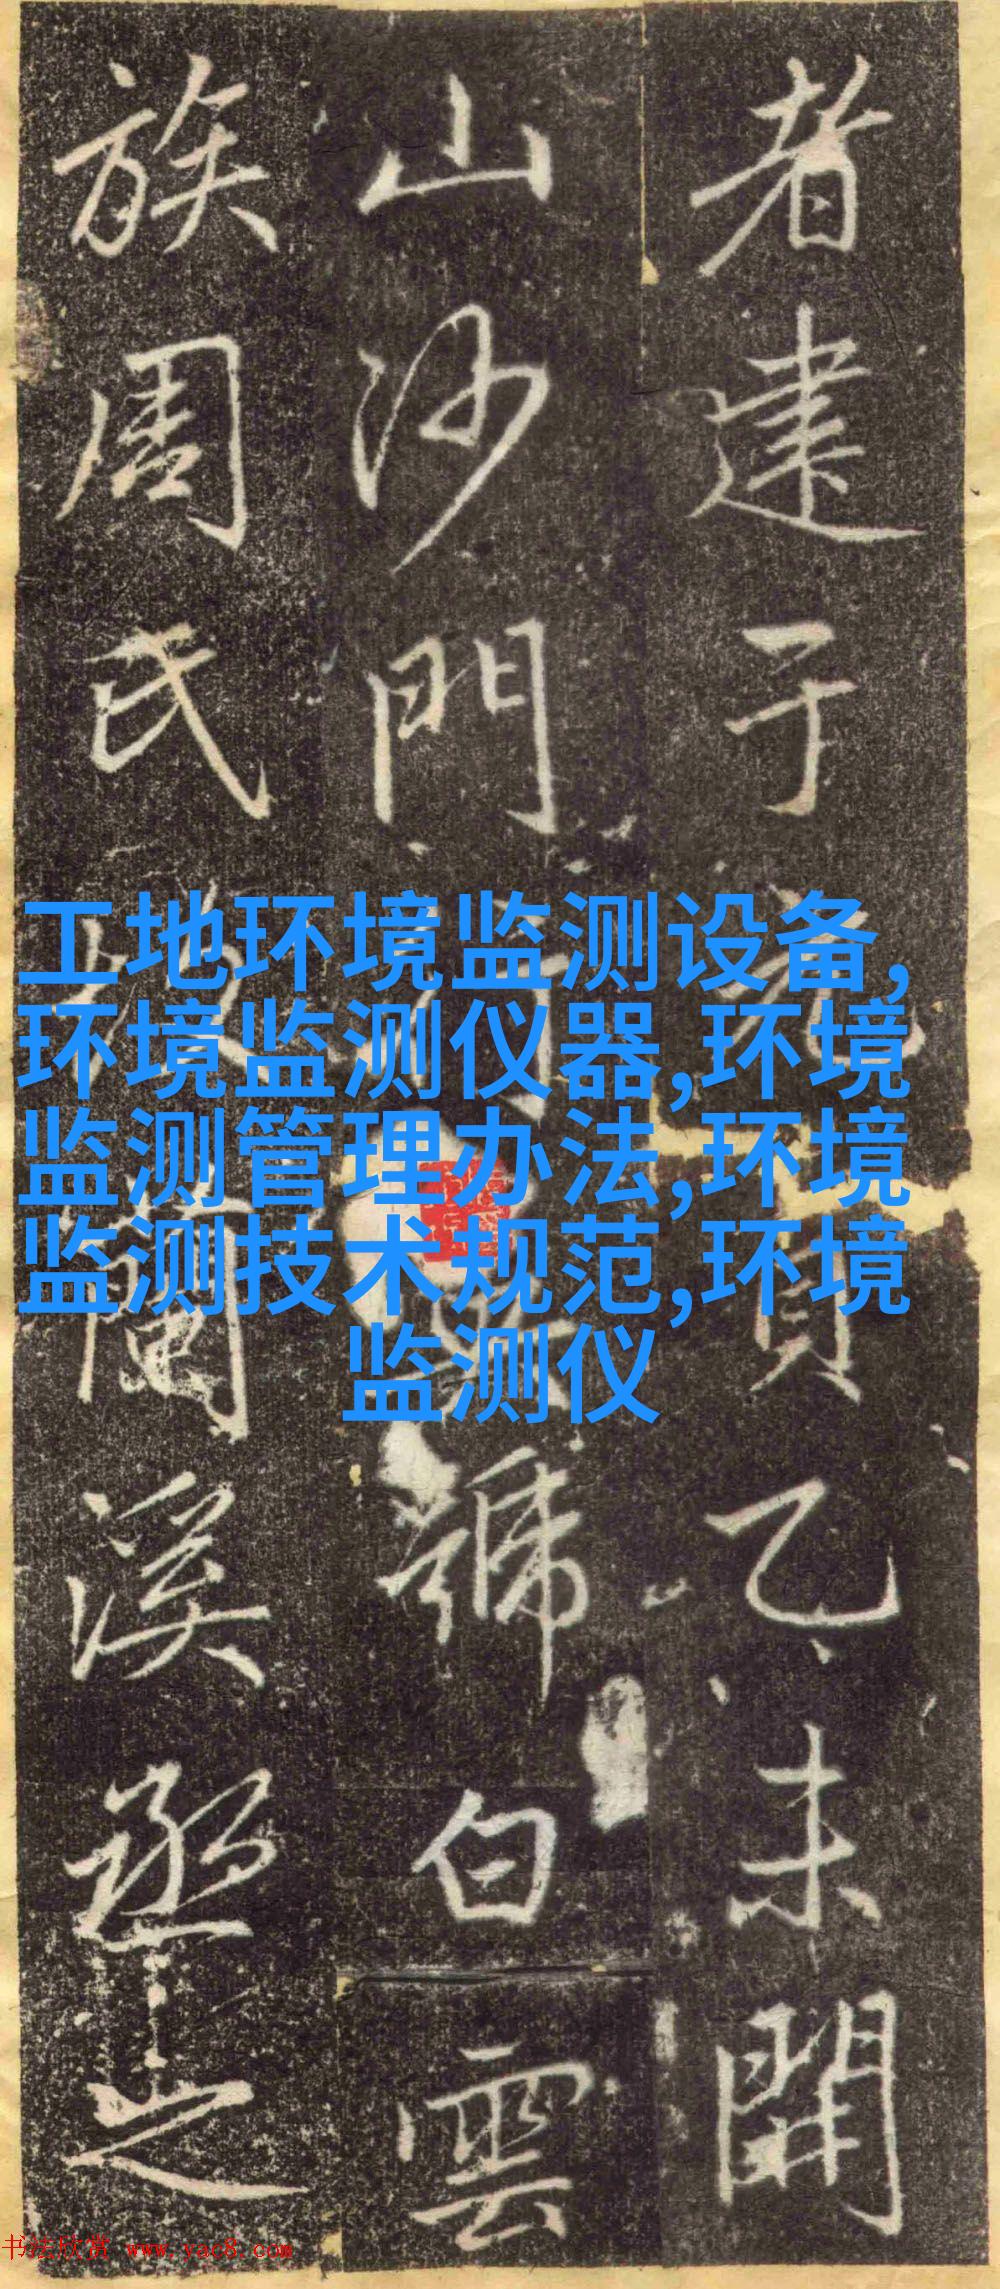 者建于元貞乙未開
山沙門號白雲
族周氏蘭溪丞之
工地环境监测设备,
环境监测仪器,环境
监测管理办法,环境
监测技术规范,环境
监测仪
书法欣赏 www.yac8.com